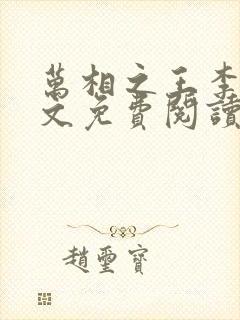 萬相之王李
文免費閱讀
趙璽寶